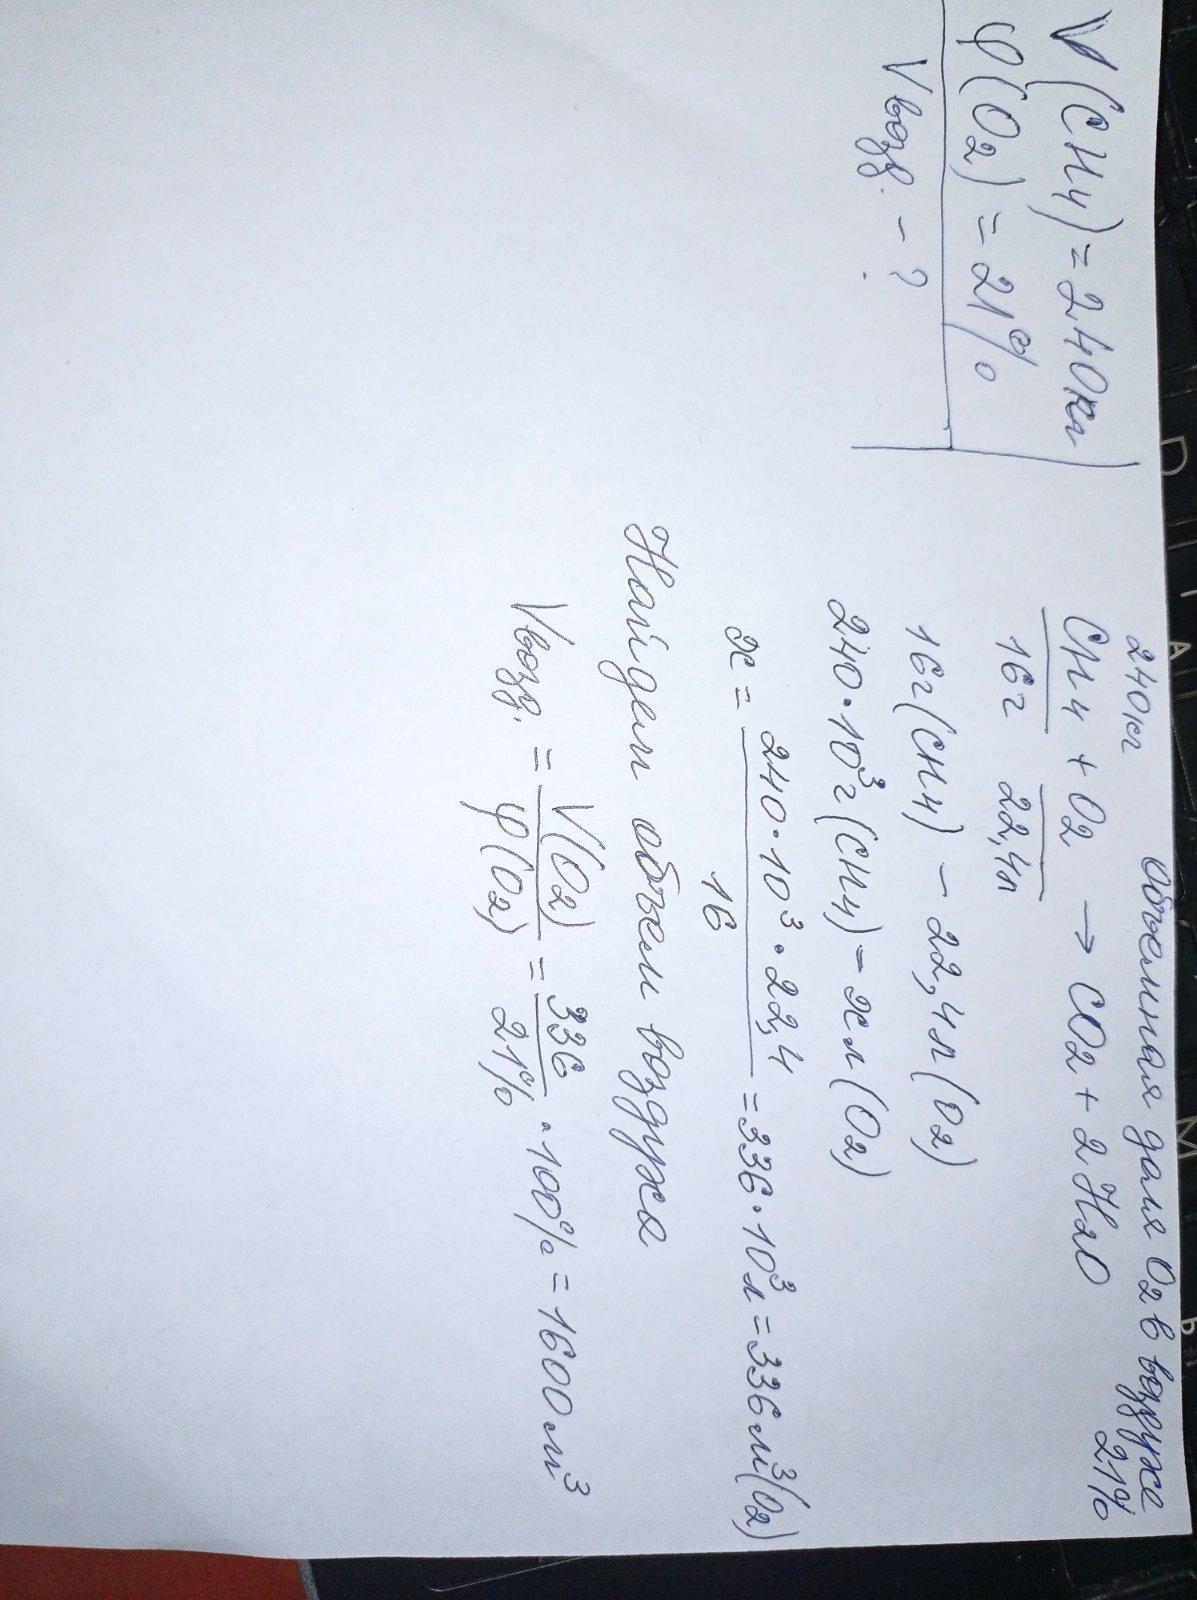 V(CH4) = 240кг
φ(O2) = 21%
Vвозд. - ?
Объемная доля O2 в воздухе 21%
240кг
CH4 + O2 → CO2 + 2H2O
16г 22,4л
16г(CH4) - 22,4л(O2)
240·10³г(CH4) - xл(O2)
x = 240·10³·22,4 / 16 = 336·10³л = 336м³(O2)
Найдем объем воздуха
Vвозд. = V(O2) / φ(O2) = 336 / 21% · 100% = 1600м³